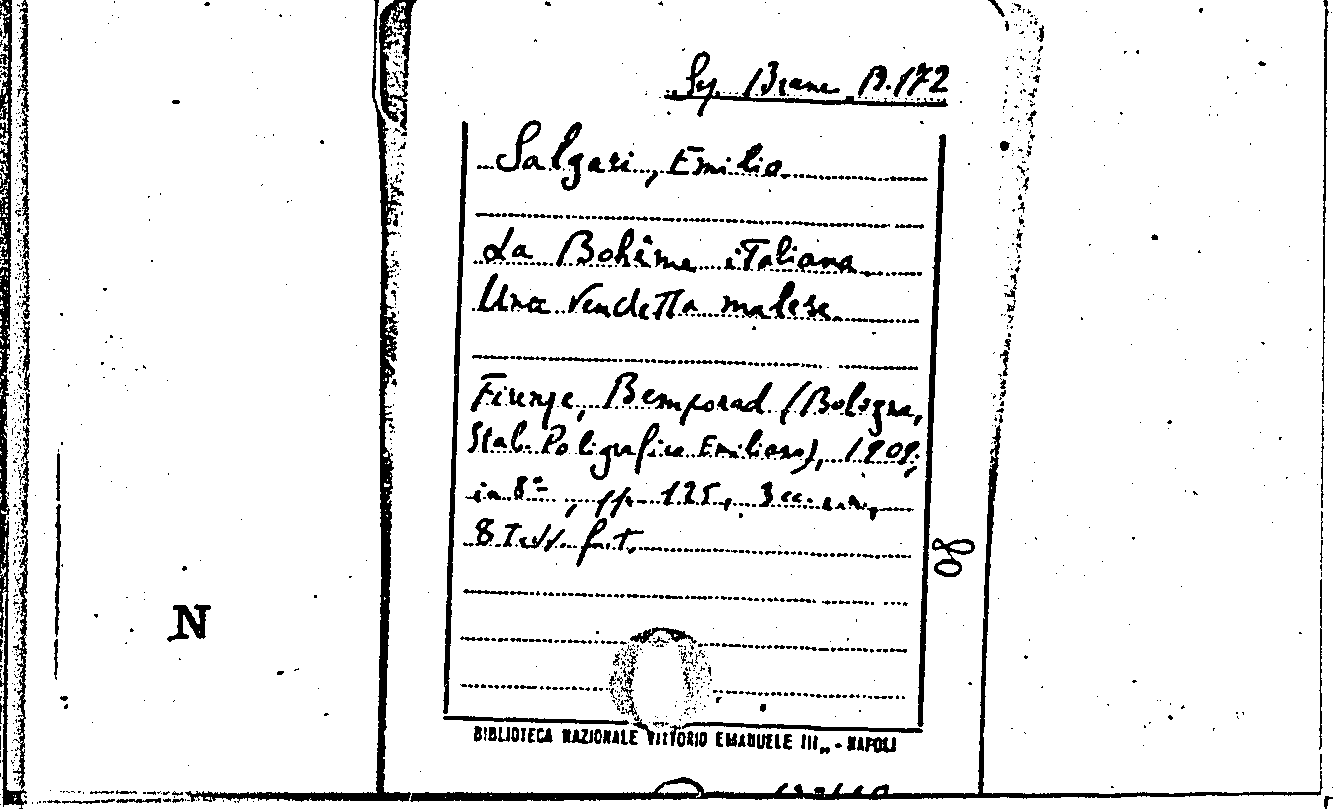 Sez. Branc. B.172
Salgari, Emilio
La Bohême italiana
Una vendetta malese
Firenze, Bemporad (Bologna,
Stab. Poligrafico Emiliano), 1909,
in 8°, pp. 125, 3 cc. nn,
8 Tavv. f.t.
N
BIBLIOTECA NAZIONALE VITTORIO EMANUELE III„ - NAPOLI